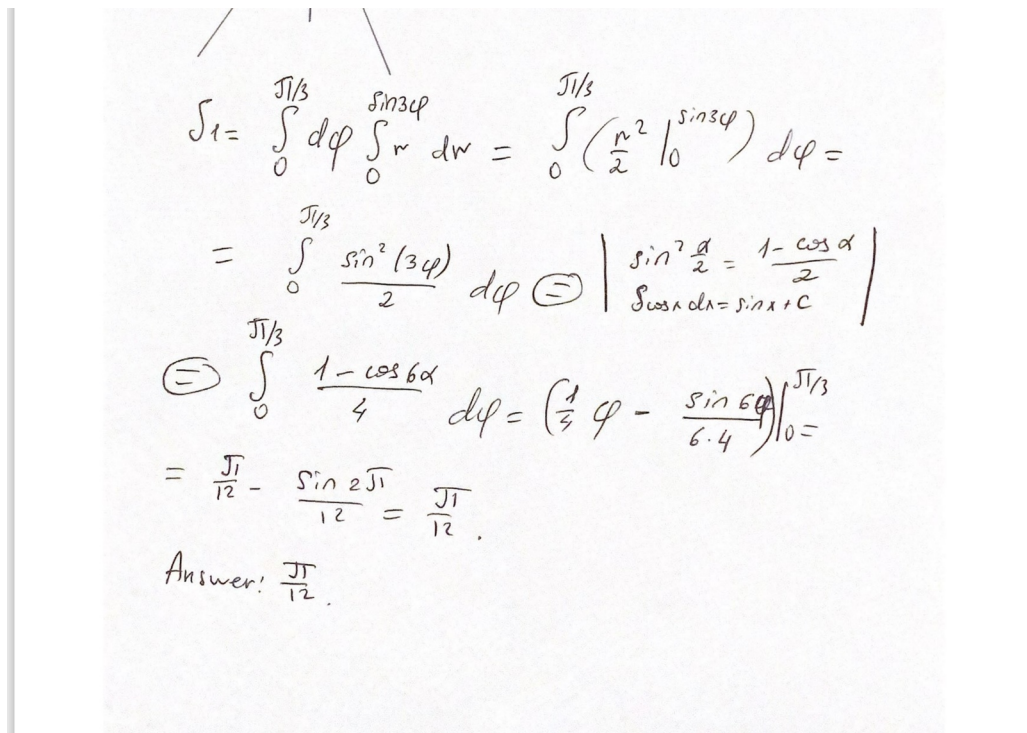 S₁ = ∫₀^{π/3} dφ ∫₀^{sin3φ} r dr = ∫₀^{π/3} (r²/2 |₀^{sin3φ}) dφ =
= ∫₀^{π/3} sin²(3φ)/2 dφ ⊜ | sin² α/2 = (1 - cos α)/2
∫cosx dx = sinx + C |
⊜ ∫₀^{π/3} (1 - cos 6α)/4 dφ = (1/4 φ - sin 6φ/(6·4))|₀^{π/3} =
= π/12 - sin 2π/12 = π/12.
Answer: π/12.